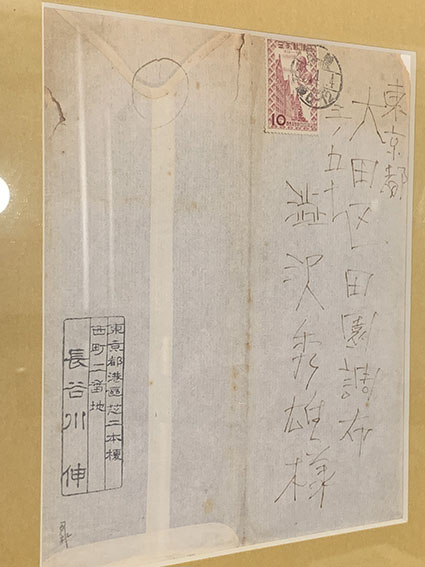 東京都
大田区田園調布
渋沢秀雄様
10
東京都港區芝二本榎
西町二番地
長谷川伸